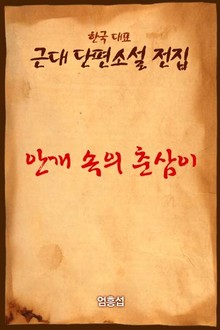 한국 대표
근대 단편소설 전집
안개 속의 춘삼이
엄흥섭